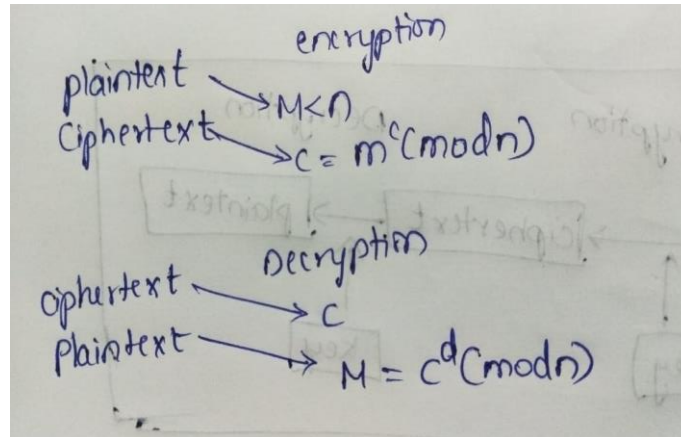 encryption
plaintext → M<n
Ciphertext → C = m^c(modn)
Decryption
ciphertext → C
Plaintext → M = C^d(modn)